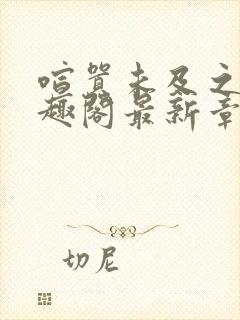 喧嚣未及之
趣阁最新章
切尼